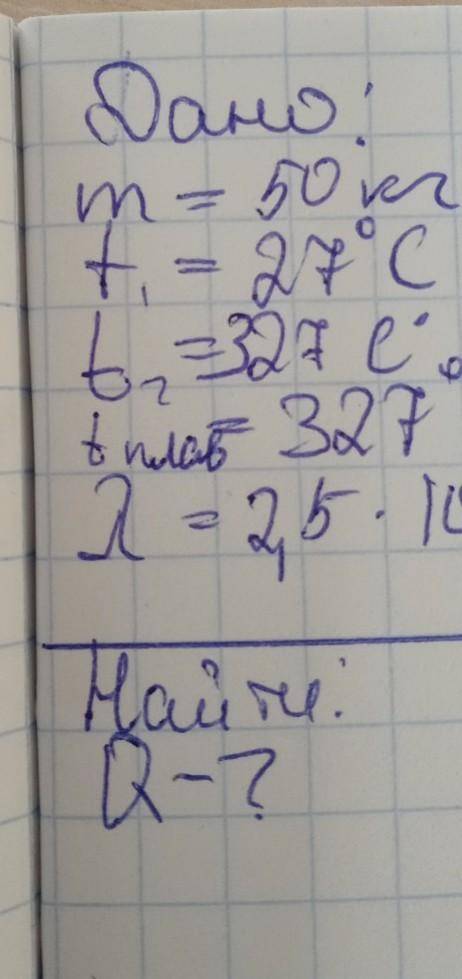 Дано:
m = 50 кг
t₁ = 27° C
t₂ = 327 C°
t плав = 327°
λ = 2,5 · 10
Найти:
Q - ?